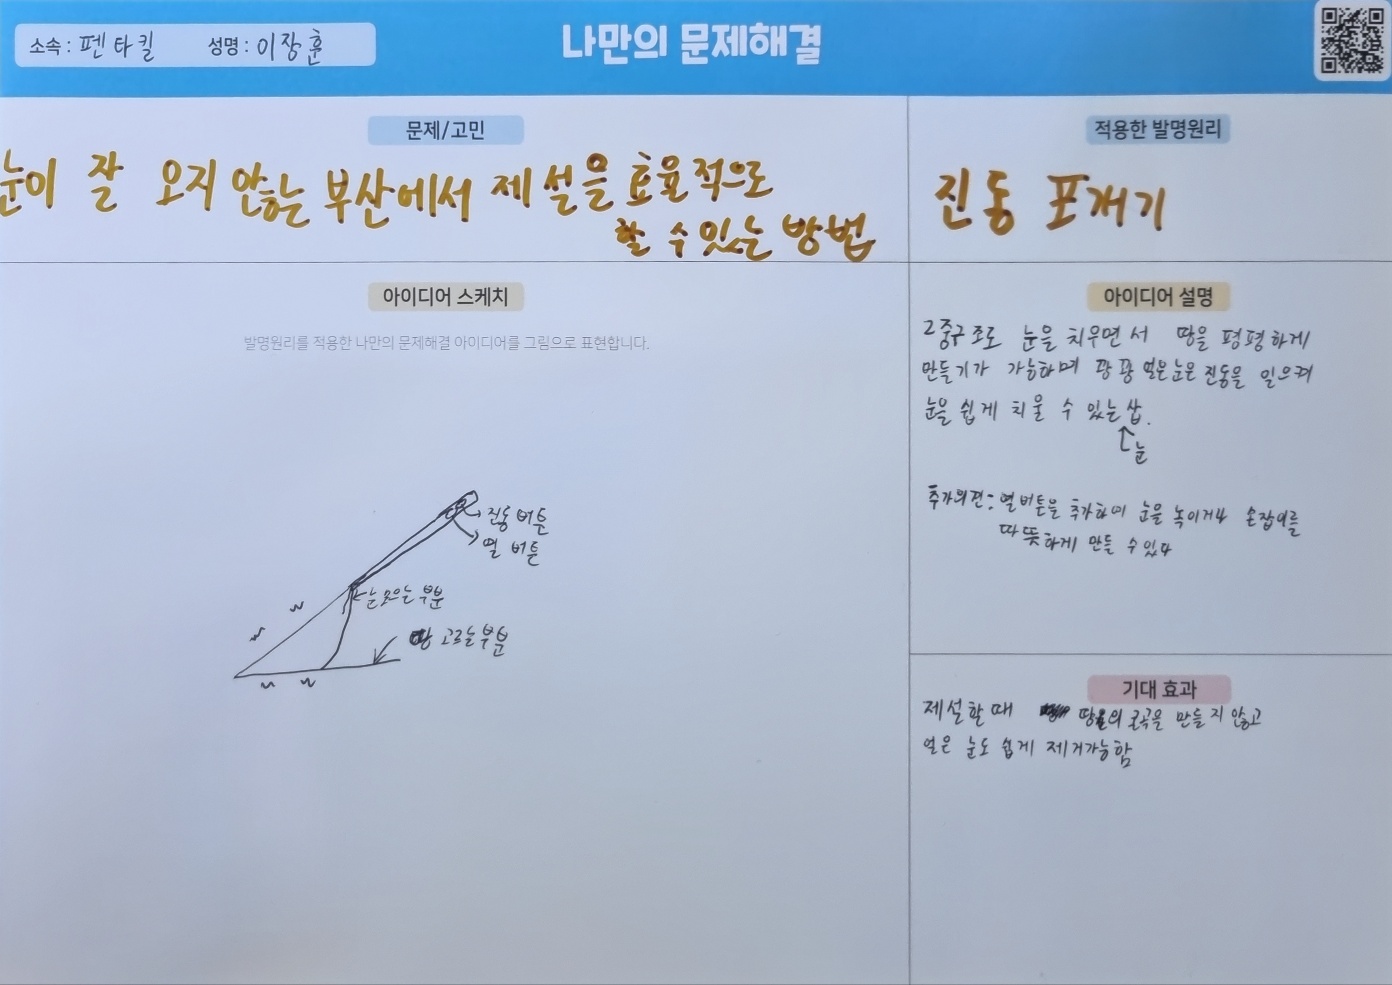 소속 : 펜타킬 성명 : 이장훈
나만의 문제해결
문제/고민
눈이 잘 오지 않는 부산에서 제설을 효율적으로
할 수 있는 방법
적용한 발명원리
진동 포개기
아이디어 스케치
발명원리를 적용한 나만의 문제해결 아이디어를 그림으로 표현합니다.
진동 버튼
열 버튼
눈 모으는 부분
땅 고르는 부분
아이디어 설명
2중구조로 눈을 치우면서 땅을 평평하게
만들기가 가능하며 꽝꽝 얼은 눈은 진동을 일으켜
눈을 쉽게 치울 수 있는 삽.
눈
추가의견: 열 버튼을 추가하며 눈을 녹이거나 손잡이를
따뜻하게 만들 수 있다
기대 효과
제설할 때 땅의 굴곡을 만들지 않고
얼은 눈도 쉽게 제거가능함